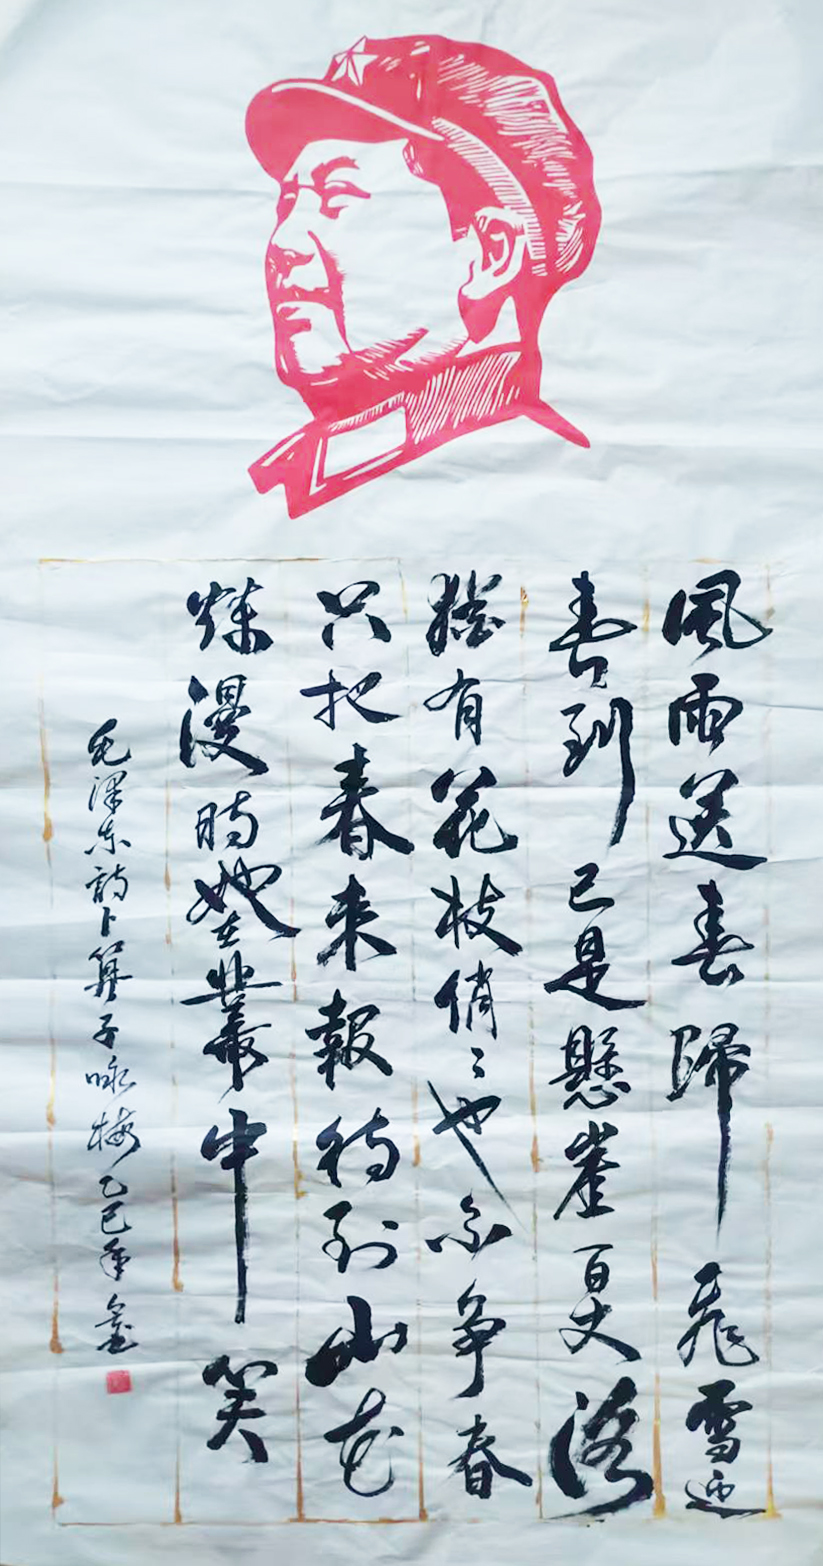 風雨送春歸飛雪迎
春到已是懸崖百丈冰
猶有花枝俏〻也不争春
只把春来報待到山花
爛漫時她在叢中笑
毛澤东詩卜算子咏梅乙巳年鑫